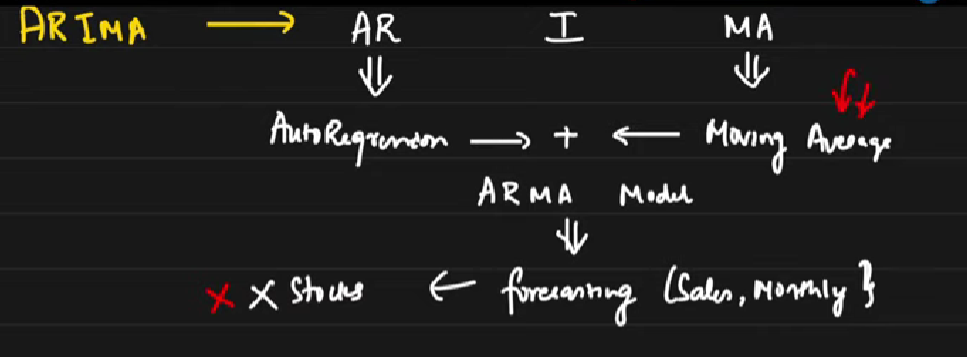 ARIMA → AR I MA
⇓ ⇓
AutoRegression → + ← Moving Average
ARMA Model
⇓
X X Stocks ← forecasting (Sales, Monthly }